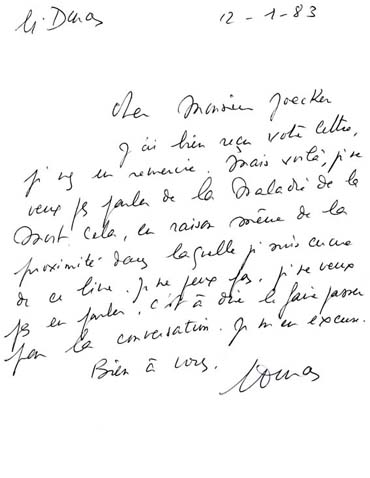 M. Duras 12-1-83
Cher Monsieur Joecker
J'ai bien reçu votre lettre,
je vs en remercie. Mais voilà, je ne
veux ps parler de la Maladie de la
Mort. Cela, en raison même de la
proximité dans laquelle je suis encore
de ce livre. Je ne peux ps, je ne veux
ps en parler, c'est à dire le faire passer
par la conversation. Je m'en excuse.
Bien à vous.
Duras